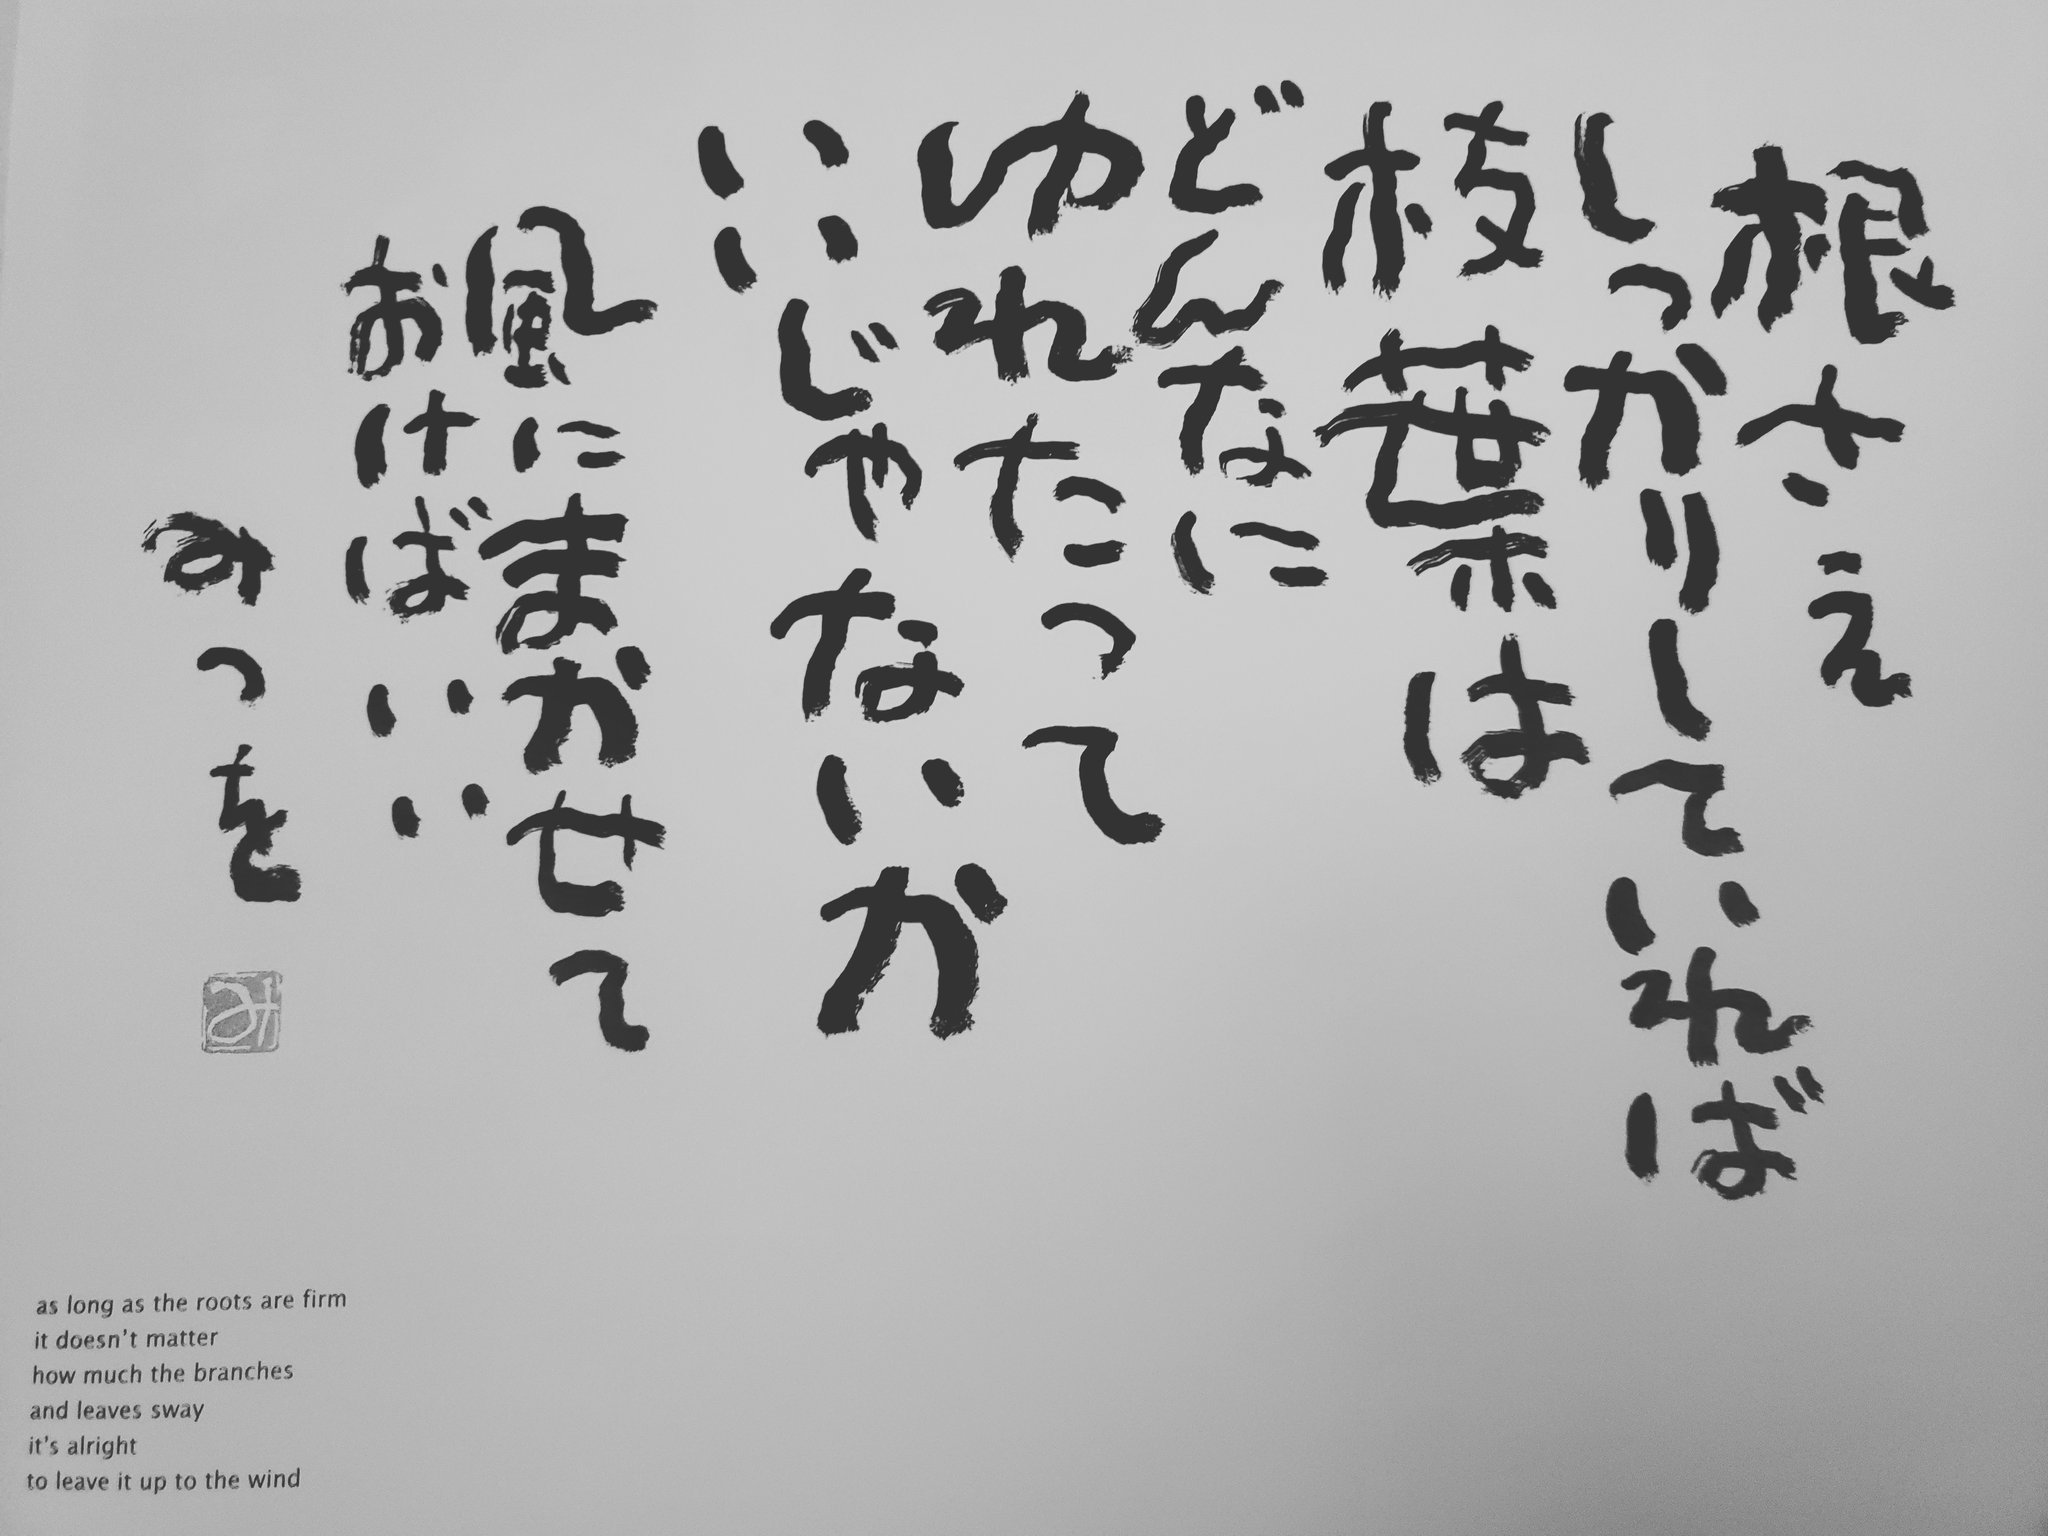 根さえ
しっかりしていれば
枝葉は
どんなに
ゆれたって
いいじゃないか
風にまかせて
おけばいい
みつを
み
as long as the roots are firm
it doesn't matter
how much the branches
and leaves sway
it's alright
to leave it up to the wind